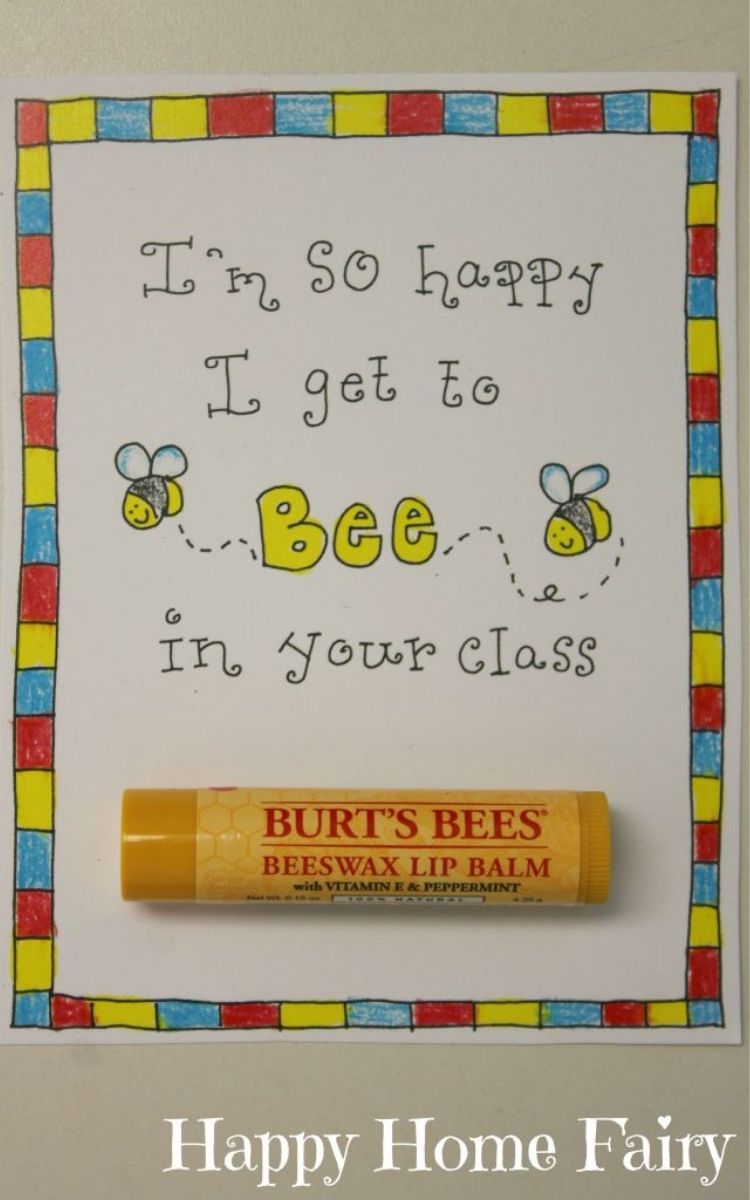 I'm SO happy
I get to
Bee
in your class
BURT'S BEES®
BEESWAX LIP BALM
with VITAMIN E & PEPPERMINT
Net Wt. 0.15 oz 100% NATURAL 4.25 g
Happy Home Fairy